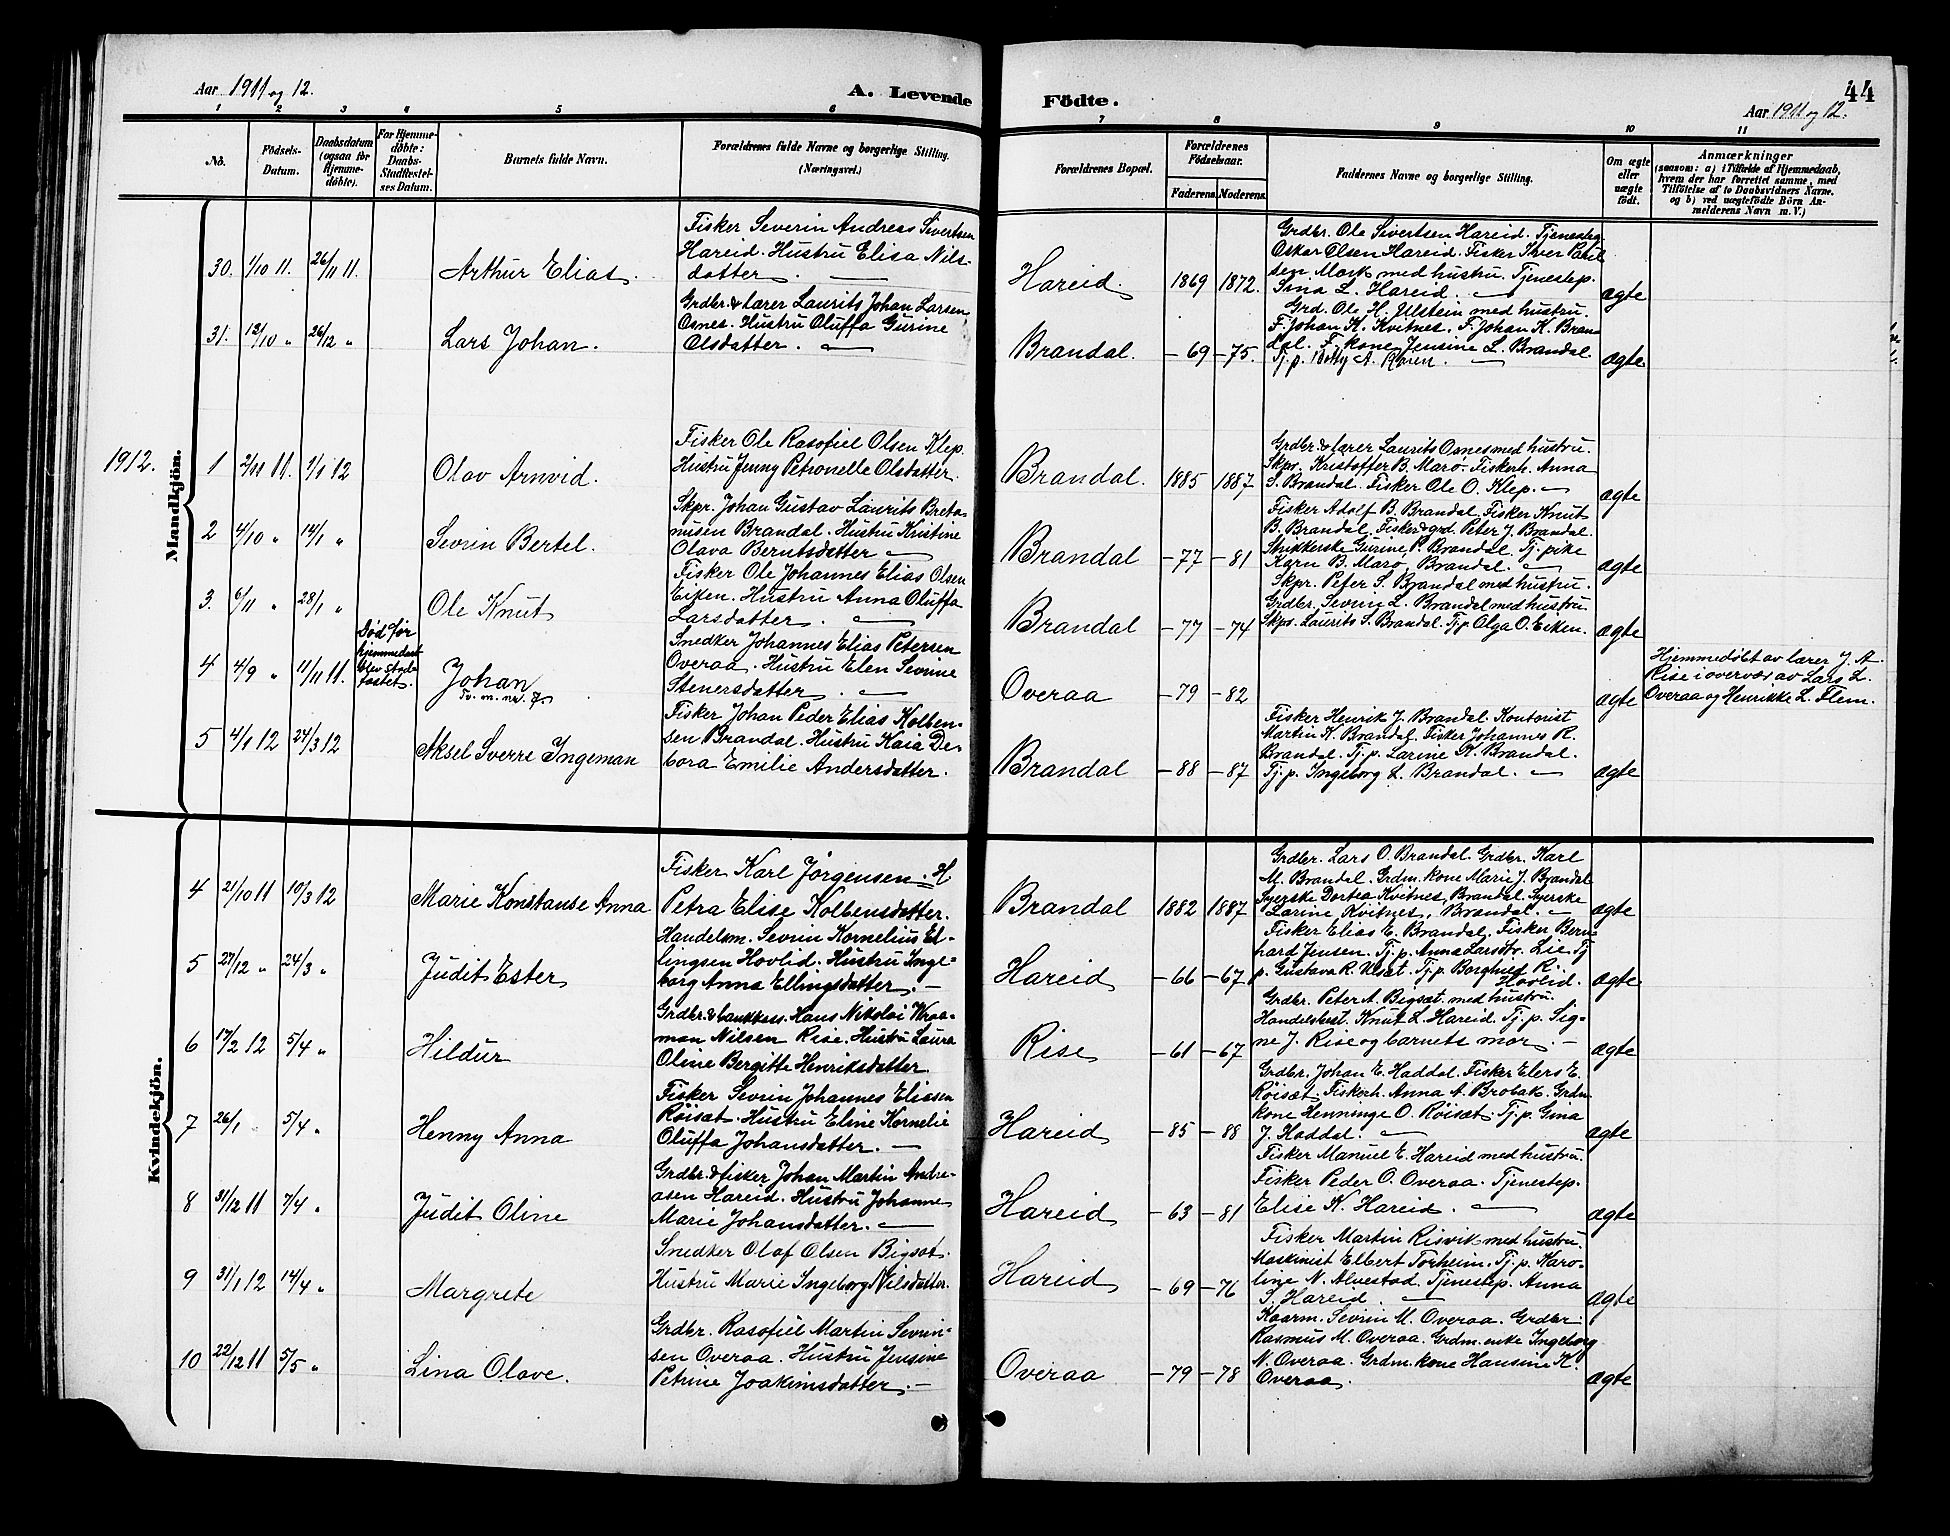 Aar 1911 og 12.
A. Levende
Födte.
44
Aar 1911 og 12.
1 2 3 4 5 6 7 8 9 10 11
No.
Födsels-
Datum.
Daabsdatum
(ogsaa for
Hjemme-
døbte).
For Hjemme-
døbte:
Daabs-
Stadfæstel-
ses Datum.
Barnets fulde Navn.
Forældrenes fulde Navne og borgerlige Stilling.
(Næringsvei.)
Forældrenes Bopæl.
Forældrenes
Födselsaar.
Faderens. Moderens.
Faddernes Navne og borgerlige Stilling.
Om ægte
eller
uægte
födt.
Anmærkninger
(saasom: a) i Tilfælde af Hjemmedaab,
hvem der har forrettet samme, med
Tilføielse af to Daabsvidners Navne,
og b) ved uægtefödte Börn An-
melderens Navn m. V.)
Mandkjön.
30. 1/10 11. 26/11 11.
Arthur Elias.
Fisker Severin Andreas Sivertsen
Hareid. Hustru Elisa Nils-
datter
Hareid.
1869 1872.
Grdbr. Ole Sivertsen Hareid. Tjenestep.
Oskar Olsen Hareid. Fisker Iver Paul-
sen Mork med hustru. Tjenestep.
Sina L. Hareid.
ægte
31. 12/10 " 26/12 "
Lars Johan.
Grdbr. & lærer Laurits Johan Larsen
Osnes. Hustru Oluffa Gurine
Olsdatter.
Brandal.
-69 -75.
Grd. Ole H. Ulstein med hustru.
F. Johan K. Kvitnes. F. Johan K. Bran-
dal. F. kone Jensine L. Brandal
Tj. p. Betty A.
ægte
1912.
1 2/11 11. 1/1 12
Olav Arnvid.
Fisker Ole Rasofiel Olsen Klep.
Hustru Jenny Petronelle Olsdatter.
Brandal.
1885 1887
Grdbr. & lærer Laurits Osnes med hustru.
Skpr. Kristoffer B. Maro. Fiskerh. Anna
S. Brandal. Fisker Ole O. Klep.
ægte
2 4/10 " 14/1 "
Sevrin Bertel.
Skpr. Johan Gustav Laurits Breto-
nusen Brandal. Hustru Kristine
Olava Berntsdatter
Brandal
-77 -81
Fisker Adolf B. Brandal. Fisker Knut
B. Brandal. Fisker & grd. Peter J. Brandal.
Strikkerske Gurine P. Brandal. Tj. pike
Karn B. Maro, Brandal.
ægte
3. 6/11 " 28/1 "
Ole Knut
Fisker Ole Johannes Elias Olsen
Eiken. Hustru Anna Oluffa
Larsdatter.
Brandal
-77 -74
Skpr. Peter S. Brandal med hustru.
Grdbr. Sevrin L. Brandal med hustru
Skpr. Laurits S. Brandal. Tj. p. Olga O. Eiken.
ægte
4 4/9 " 11/11 11.
Død før
hjemmedaab
blev stad-
fæstet.
Johan
Tv. m. nr. 7.
Snedker Johannes Elias Petersen
Overaa. Hustru Elen Sevrine
Stenersdatter.
Overaa
-79 -82
ægte
Hjemmedøbt av lærer J. A.
Rise i overvær av Lars L.
Overaa og Henrikke L. Flem.
5 4/1 12 24/3 12
Aksel Sverre Ingeman
Fisker Johan Peder Elias Kolben-
sen Brandal. Hustru Kaia De-
bora Emilie Andersdatter.
Brandal
-88 -87
Fisker Henrik J. Brandal. Kontorist
Martin K. Brandal. Fisker Johannes R.
Brandal. Tj. p. Larine K. Brandal.
Tj. p. Ingeborg L. Brandal.
ægte
Kvindekjön.
4 21/10 11 10/3 12
Marie Konstanse Anna
Fisker Karl Jørgensen. H.
Petra Elise Kolbensdatter.
Brandal
1882 1887
Grdbr. Lars O. Brandal. Grdbr. Karl
M. Brandal. Grdm. kone Marie J. Brandal
Syerske Dortea Kvitnes, Brandal. Syerske
Larine Kvitnes, Brandal.
ægte
5 27/12 " 24/3 "
Judit Ester
Handelsm. Sevrin Kornelius El-
lingsen Hovlid. Hustru Inge-
borg Anna Ellingsdatter.
Hareid
-66 -67
Fisker Elias E. Brandal. Fisker Bern-
hard Jensen. Tj. p. Anna Larsdtr. Lie. Tj
p. Gustava R. Uset. Tj. p. Borghild R.
Hovlid.
ægte
6 17/2 12 5/4 "
Hildur
Grdbr. & bankkass. Hans Nikolai Kroa-
man Nilsen Rise. Hustru Laura
Oline Bergitte Henriksdatter.
Rise
-61 -67
Grdbr. Peter A. Bigset med hustru.
Handelsbest. Knut L. Hareid. Tj. p. Sig-
ne J. Rise og barnets mor.
ægte
7 26/1 " 5/4 "
Henny Anna
Fisker Sevrin Johannes Eliasen
Røisæt. Hustru Eline Kornelie
Oluffa Johansdatter.
Hareid
-85 -88
Grdbr. Johan E. Haddal. Fisker Elers E.
Røisæt. Fiskerh. Anna A. Brobak. Grdm.
kone Henninge O. Røisæt. Tj. p. Gina
J. Haddal.
ægte
8 31/12 11 7/4 "
Judit Oline
Grdbr. & fisker Johan Martin Andre-
asen Hareid. Hustru Johanne
Marie Johansdatter.
Hareid
-63 -81
Fisker Manuel E. Hareid med hustru.
Fisker Peder O. Overaa. Tjenestep.
Elise K. Hareid.
ægte
9 31/1 12 14/4 "
Margrete
Snedker Olaf Olsen Bigsæt.
Hustru Marie Ingeborg Nilsdatter.
Hareid
-69 -76
Fisker Martin Risvik med hustru.
Maskinist Elbert Torheim. Tj. p. Karo-
line N. Alvestad. Tjenestep. Anna
S. Hareid.
ægte
10 22/12 11 5/5 "
Lina Olave.
Grdbr. Rasofiel Martin Sevrin-
sen Overaa. Hustru Jensine
Petrine Joakimsdatter.
Overaa
-79 -78
Kaarm. Sevrin M. Overaa. Grdbr.
Rasmus M. Overaa. Grdm. enke Ingeborg
N. Overaa. Grdm. kone Hansine K.
Overaa.
ægte